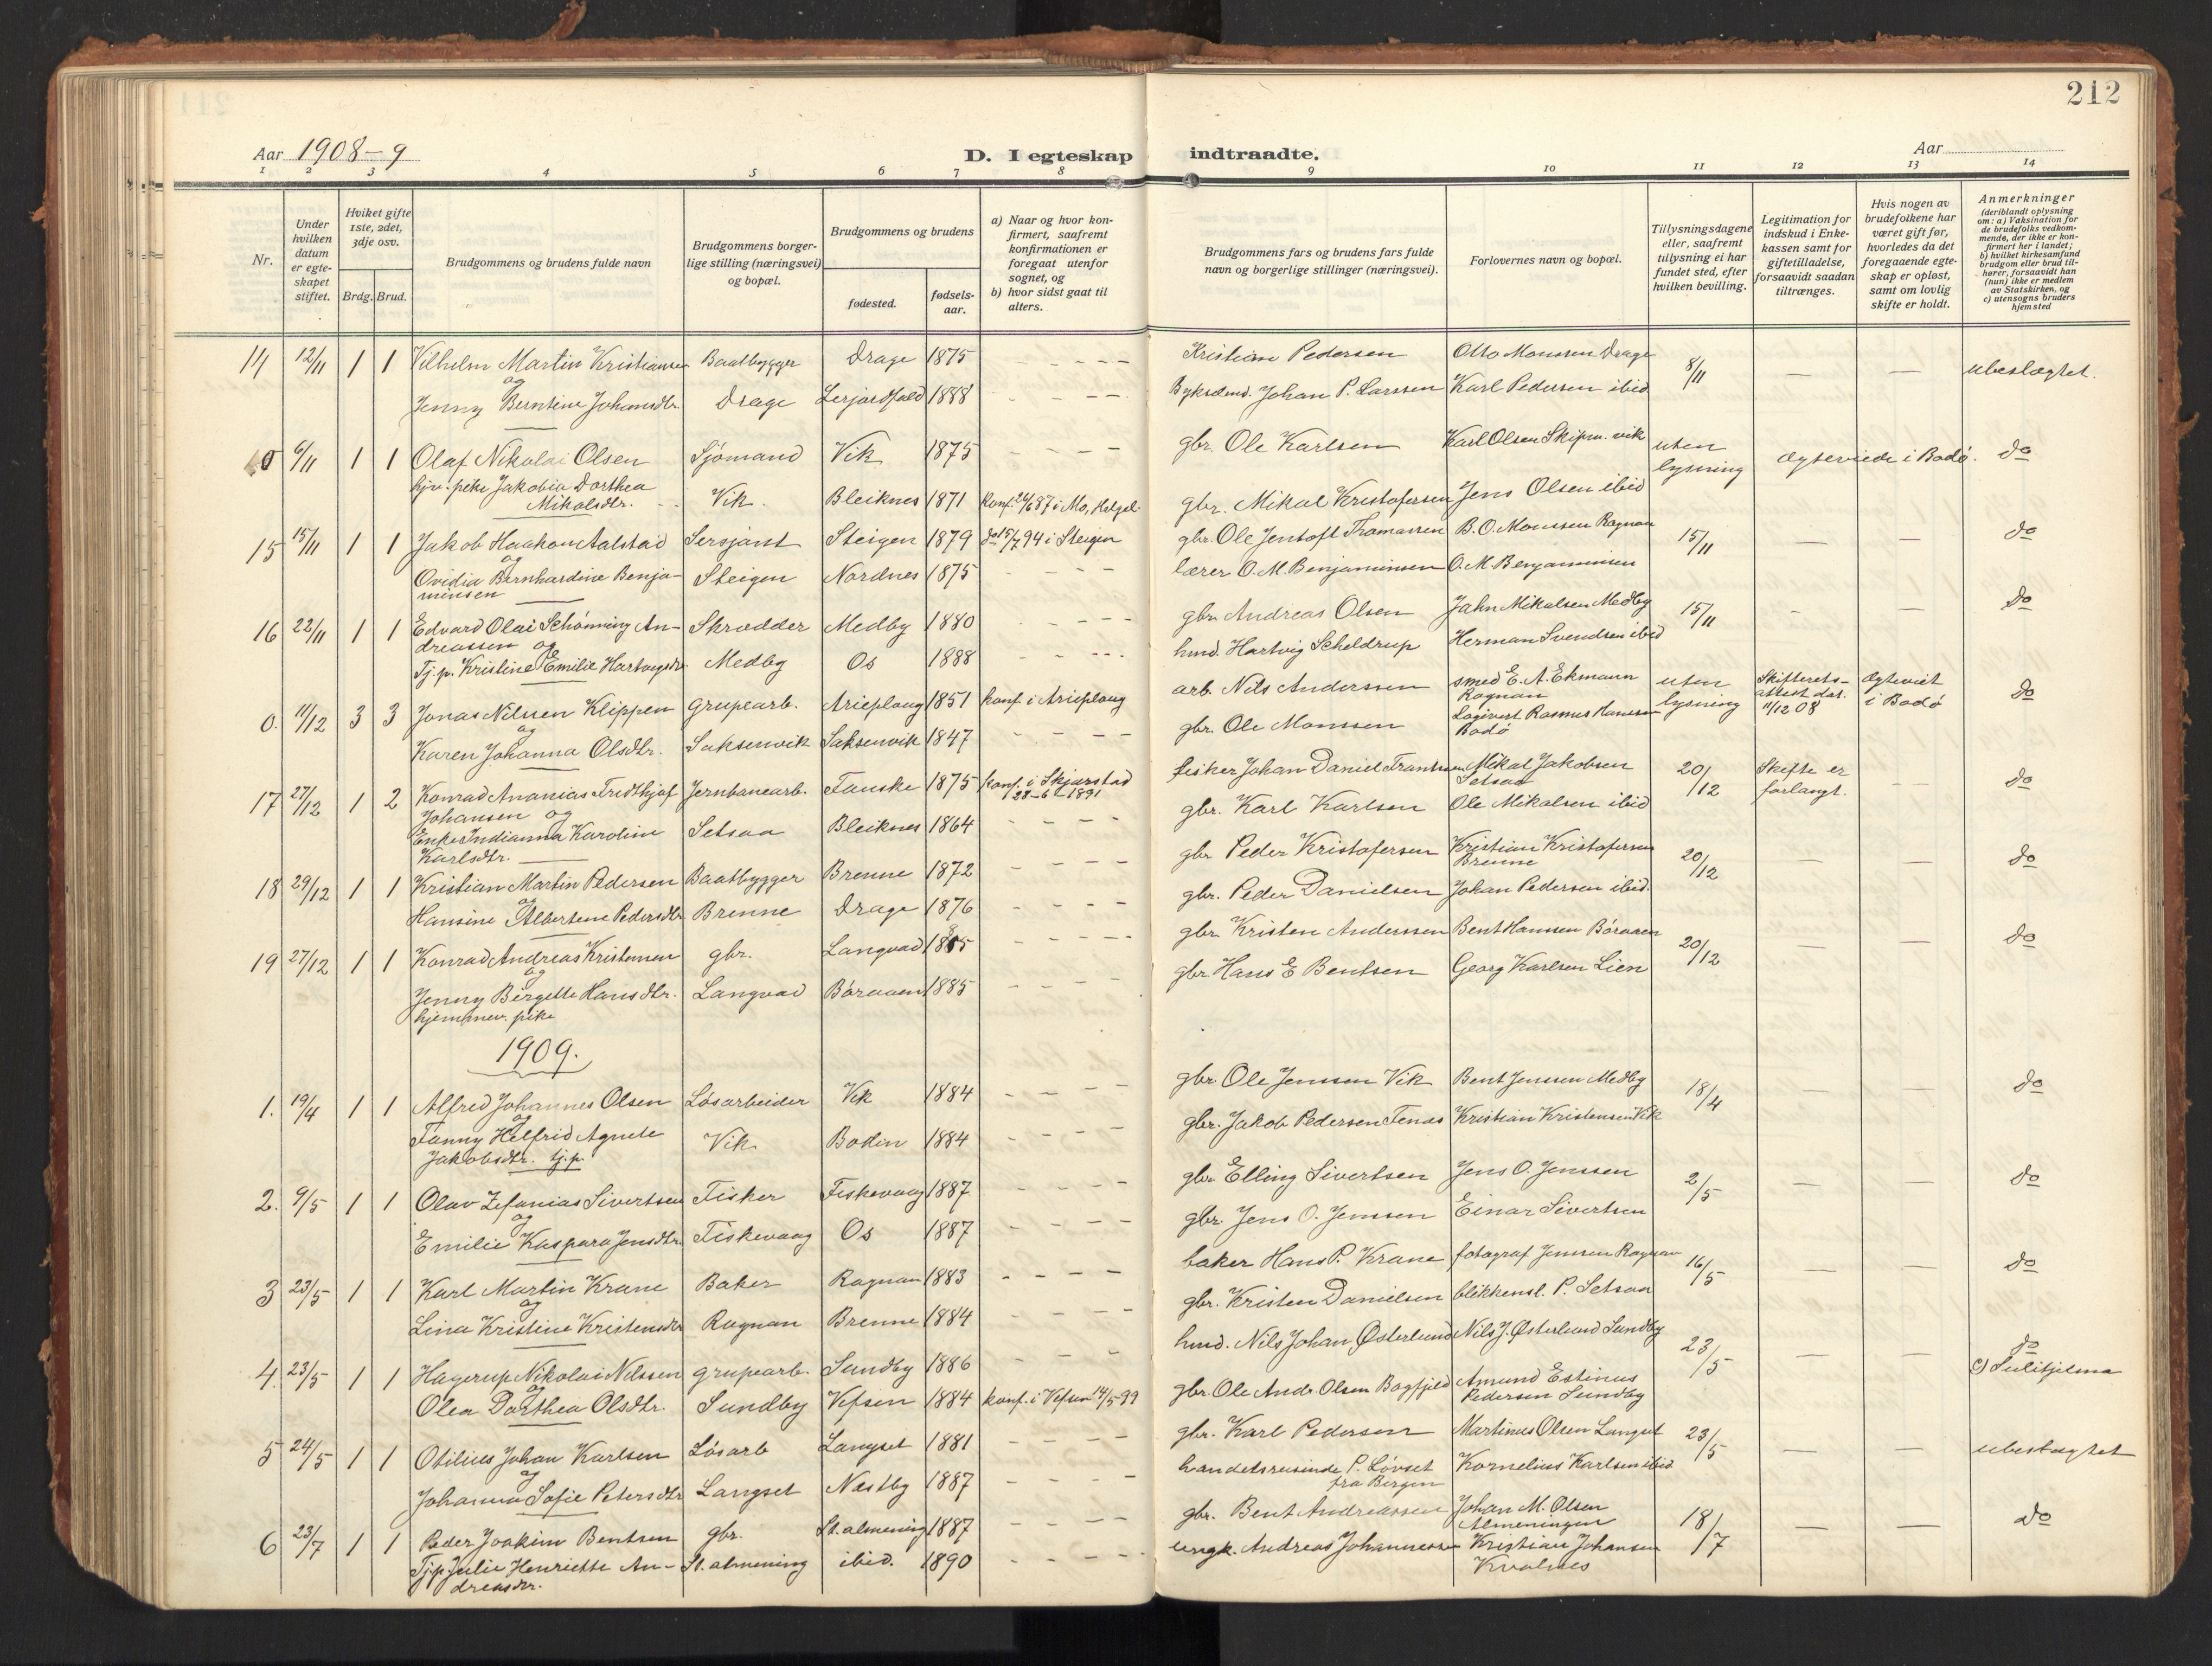 212
Aar 1908-9
D. I egteskap indtraadte.
Aar
1 2 3 4 5 6 7 8 9 10 11 12 13 14
Nr.
Under hvilken datum er egteskapet stiftet.
Hviket gifte 1ste, 2det, 3dje osv.
Brdg. Brud.
Brudgommens og brudens fulde navn
Brudgommens borgerlige stilling (næringsvei) og bopæl.
Brudgommens og brudens
fødested.
fødselsaar.
a) Naar og hvor konfirmert, saafremt konfirmationen er foregaat utenfor sognet, og
b) hvor sidst gaat til alters.
Brudgommens fars og brudens fars fulde navn og borgerlige stillinger (næringsvei).
Forlovernes navn og bopæl.
Tillysningsdagene eller, saafremt tillysning ei har fundet sted, efter hvilken bevilling.
Legitimation for indskud i Enkekassen samt for giftetilladelse, forsaavidt saadan tiltrænges.
Hvis nogen av brudefolkene har været gift før, hvorledes da det foregaaende egteskap er opløst, samt om lovlig skifte er holdt.
Anmerkninger (deriblandt oplysning om: a) Vaksination for de brudefolks vedkommende, der ikke er konfirmert her i landet; b) hvilket kirkesamfund brudgom eller brud tilhører, forsaavidt han (hun) ikke er medlem av Statskirken, og c) utensogns bruders hjemsted
14 12/11 1 1 Vilhelm Martin Kristiansen Baatbygger Drage 1875 - - - - Kristian Pedersen Otto Monsen Drage 8/11 — — ubeslægtet.
og
Jenny Berntine Johansdtr. Drage 1888 - - - - Johan P. Larssen Karl Pedersen ibid
0 6/11 1 1 Olaf Nikolai Olsen Sjömand Vik 1875 - - - - gbr. Ole Karlsen Karl Olsen Skipm. vik uten lysning Ægteviede i Bodø. do
hjv. pike Jakobia Dorthea Mikalsdtr. Vik. Bleiknes 1871 Konf. 26/6 87 i Mo, Helgel. gbr. Mikal Kristofersen Jens Olsen ibid
15 15/11 1 1 Jakob Haakon Aalstad Sersjant Steigen 1879 do 15/7 94 i Steigen gbr. Ole Jentoft Thomassen B. O. Monssen Rognan 15/11 — — do
og
Ovidia Bernhardine Benjaminsen Steigen Nordnes 1875 - - - lærer O. M. Benjaminsen O. M. Benjaminsen
16 22/11 1 1 Edvard Olai Schönning Andreassen og Skrædder Medby 1880 - - - - gbr. Andreas Olsen Jahn Mikalsen Medby 15/11 - — do
Tj. p. Kristine Emilie Hartvigsdtr. Medby Os 1888 - - - - hmd. Hartvig Scheldrup Herman Svendsen ibid
0. 11/12 3 3 Jonas Nilssen Klippen grupearb. Arieploug 1851 konf i Arieploug arb. Nils Anderssen smed E. A. Ekmann Rognan uten lysning Skifterets-attest dat. 11/12 08 Ægteviet i Bodø do
og
Karen Johanna Olsdtr. Saksenvik Saksenvik 1847 - - - - gbr. Ole Monssen Rasmus Hanssen Bodø
17 27/12 1 2 Konrad Ananias Fridthjof Johansen og Jernbanearb. Fauske 1875 konf. i Skjærstad 28-6-1891 fisker Johan Daniel Frantsen Mikal Jakobsen Setsaa 20/12 Skifte er forlangt. - - do
Enke Indianna Karoline Karlsdtr. Setsaa Bleiknes 1864 - - - - gbr. Karl Karlsen Ole Mikalsen ibid
18 29/12 1 1 Kristian Martin Pedersen Baatbygger Brenne 1872 - - - - gbr. Peder Kristofersen Kristian Kristofersen Brenne 20/12 — — do
og
Hansine Albertine Pedersdtr Brenne Drage 1876 - - - - gbr. Peder Danielsen Johan Pedersen ibid.
19 27/12 1 1 Konrad Andreas Kristensen gbr. Langvad - - - - gbr. Kristen Anderssen Bent Hanssen Börvaen 20/12 — — do
og
Jenny Birgitte Hansdtr. Langvad 1885 - - - gbr Hans E Bentsen Georg Karlsen Lien
hjemmev. pike
1909.
1. 19/4 1 1 Alfred Johannes Olsen Løsarbeider Vik 1884 - - - gbr. Ole Jenssen Vik Bent Jenssen Medby 18/4 — — do
og
Fanny Helfrid Agnete Jakobsdtr. tj.p. Vik Bodin 1884 - - - - gbr. Jakob Pedersen Kristian Kristensen Vik
2. 9/5 1 1 Olav Zefanias Sivertsen Fisker Fiskevaag 1887 - - - - gbr. Elling Sivertsen Jens O. Jenssen 2/5 — — do
og
Emilie Kaspara Jensdtr. Fiskevaag Os 1887 - - - - gbr. Jens O. Jenssen Einar Sivertsen
3 23/5 1 1 Karl Martin Krane Baker Rognan 1883 - - - - baker Hans P. Krane fotograf Jenssen Rognan 16/5 — — do
og
Lina Kristine Kristensdtr Rognan Brenne 1884 - - - - gbr. Kristen Danielsen blikkensl. P. Setsaa
4. 23/5 1 1 Hagerup Nikolai Nilssen grupearb. Sundby 1886 - - - hmd. Nils Johan Østerlund Nils J. Østerlund Sundby 23/5 — — do
c) Sulitjelma
og
Olea Dorthea Olsdtr. Sundby Vefsen 1884 konf. i Vefsen 14/5 99 gbr. Ole Andr. Olsen Bagfjeld Amund Estinus Pedersen Sundby
5 24/5 1 1 Otilius Johan Karlsen Løsarb Langset 1881 - - - - gbr. Karl Pedersen Martinus Olsen Langset 23/5 — — ubeslægtet
og
Johanna Sofie Petersdtr Langset Næstby 1887 - - - - handelsreisende P. Lövset fra Bergen Kornelius Karlsen ibid
6 23/7 1 1 Peder Joakim Bentsen gbr. St. almening 1887 - - - - gbr. Bent Andreassen Johan M. Olsen Almeningen 18/7 — — do
Tj.p. Julie Henriette Andreasdtr. St. almening ibid. 1890 - - - - ungk. Andreas Johannessen Kristian Johansen Kvalnes